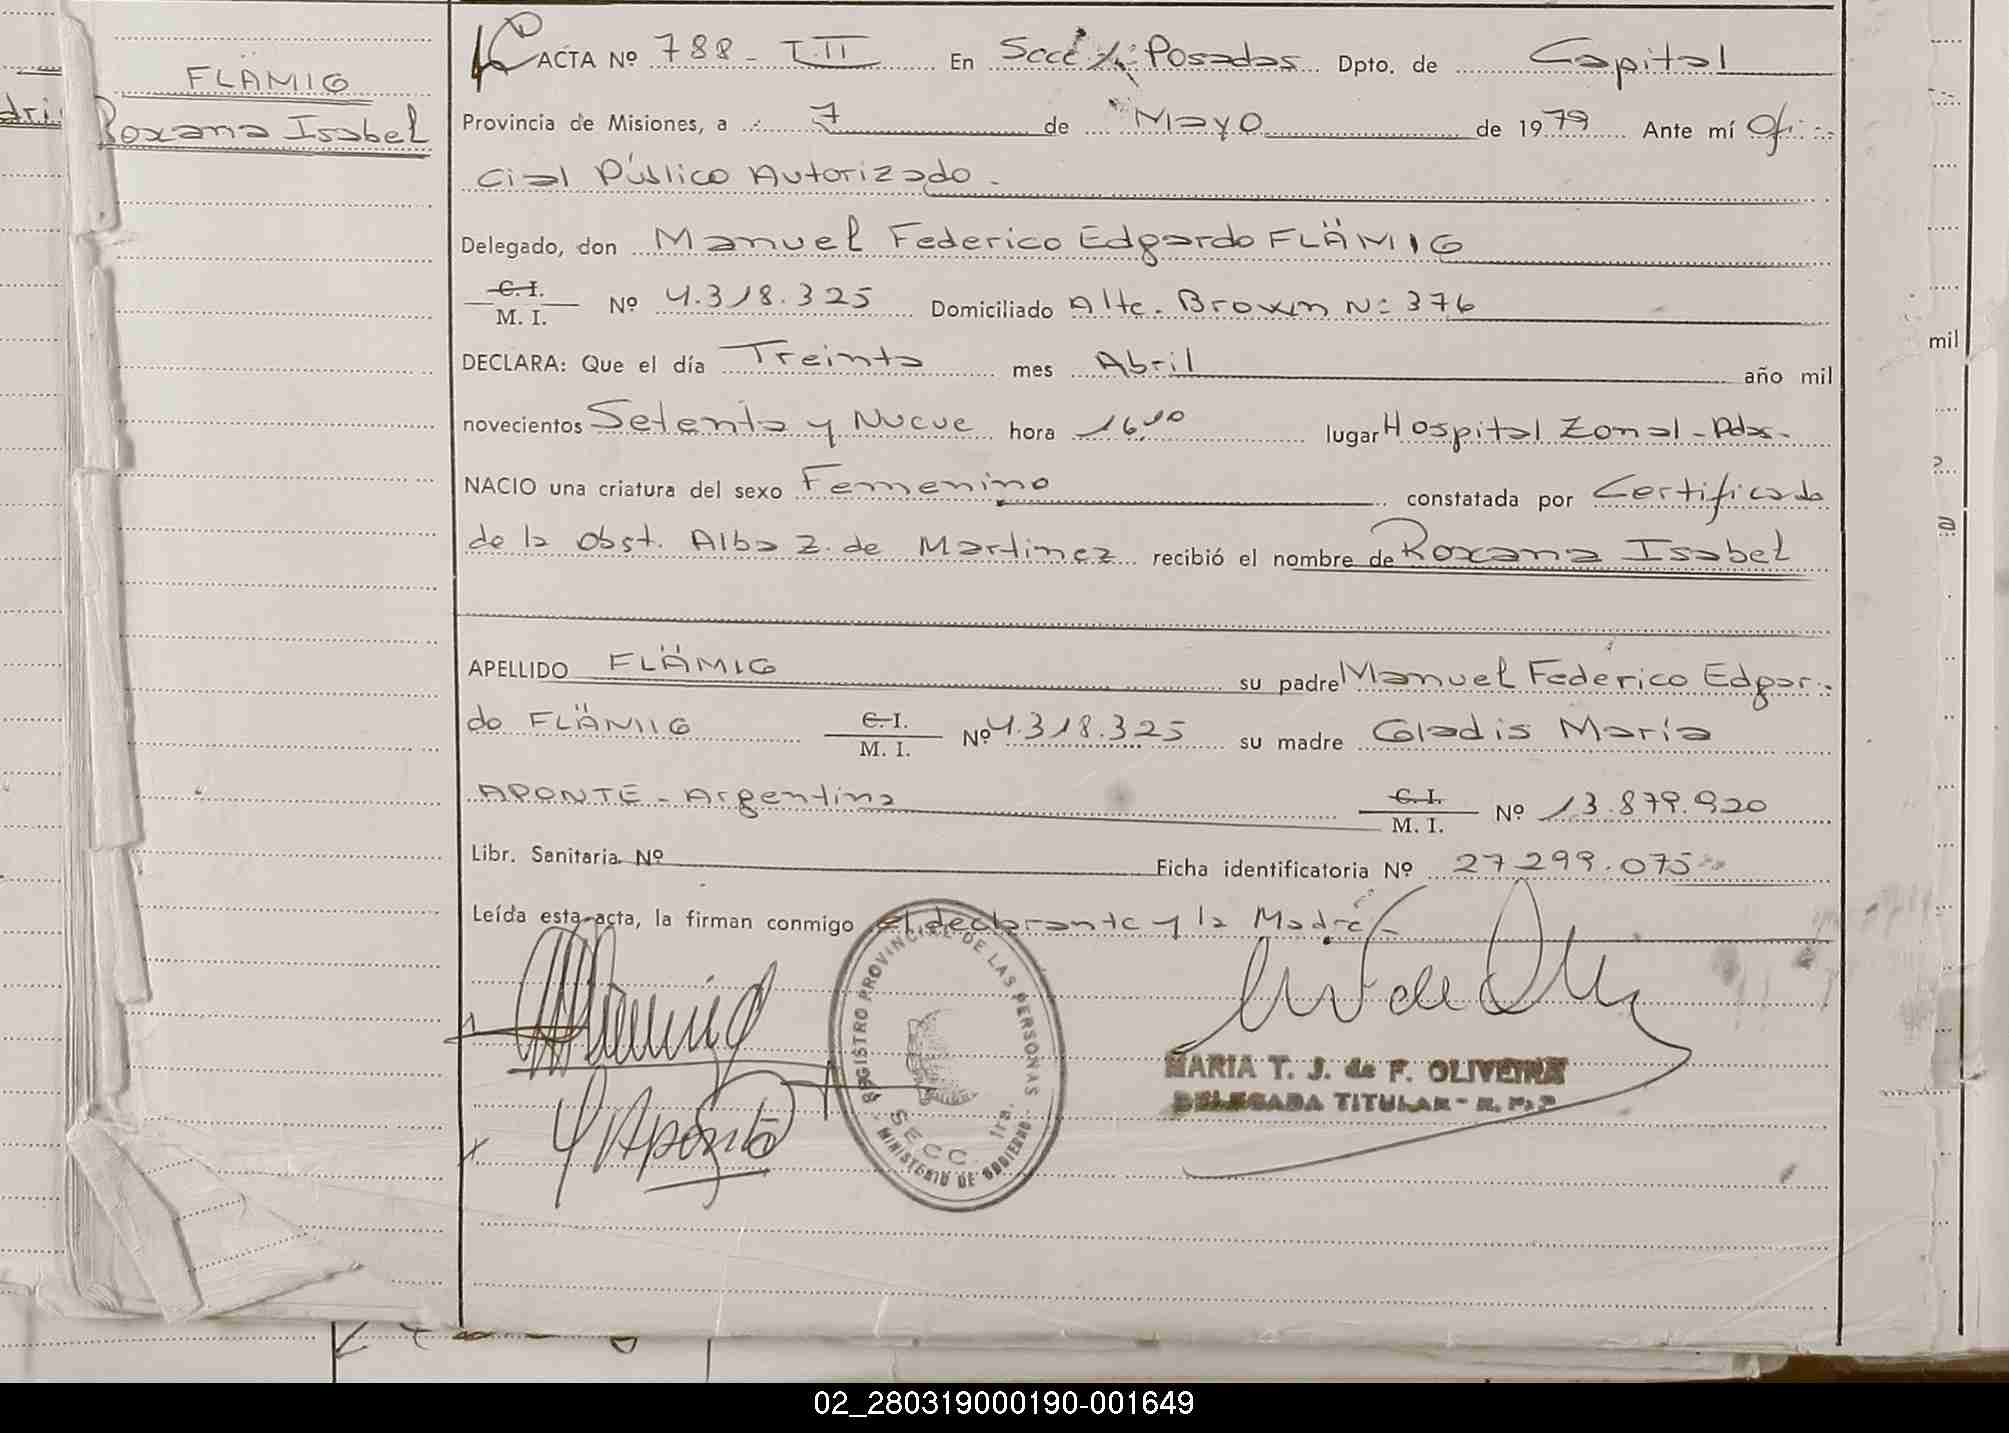 FLÄMIG
Roxana Isabel
ACTA Nº 788 - T. II En Secc 1ª Posadas Dpto. de Capital
Provincia de Misiones, a 7 de Mayo de 1979 Ante mí Ofi-
cial Público Autorizado.
Delegado, don Manuel Federico Edgardo FLÄMIG
C. I.
M. I. Nº 4.318.325 Domiciliado Alte. Brown Nº 376
DECLARA: Que el día Treinta mes Abril año mil
novecientos Setenta y Nueve hora 16,10 lugar Hospital Zonal - Pdas -
NACIO una criatura del sexo Femenino constatada por Certificado
de la Obst. Alba Z. de Martinez recibió el nombre de Roxana Isabel
APELLIDO FLÄMIG su padre Manuel Federico Edgar-
do FLÄMIG C. I. M. I. Nº 4.318.325 su madre Gladis María
APONTE - Argentina C. I. M. I. Nº 13.879.920
Libr. Sanitaria Nº Ficha identificatoria Nº 27.299.075
Leída esta acta, la firman conmigo el declarante y la Madre -
REGISTRO PROVINCIAL DE LAS PERSONAS
SECC. 1ra.
MINISTERIO DE GOBIERNO
MARIA T. J. de F. OLIVEIRA
DELEGADA TITULAR - R. P. P
mil
02_280319000190-001649